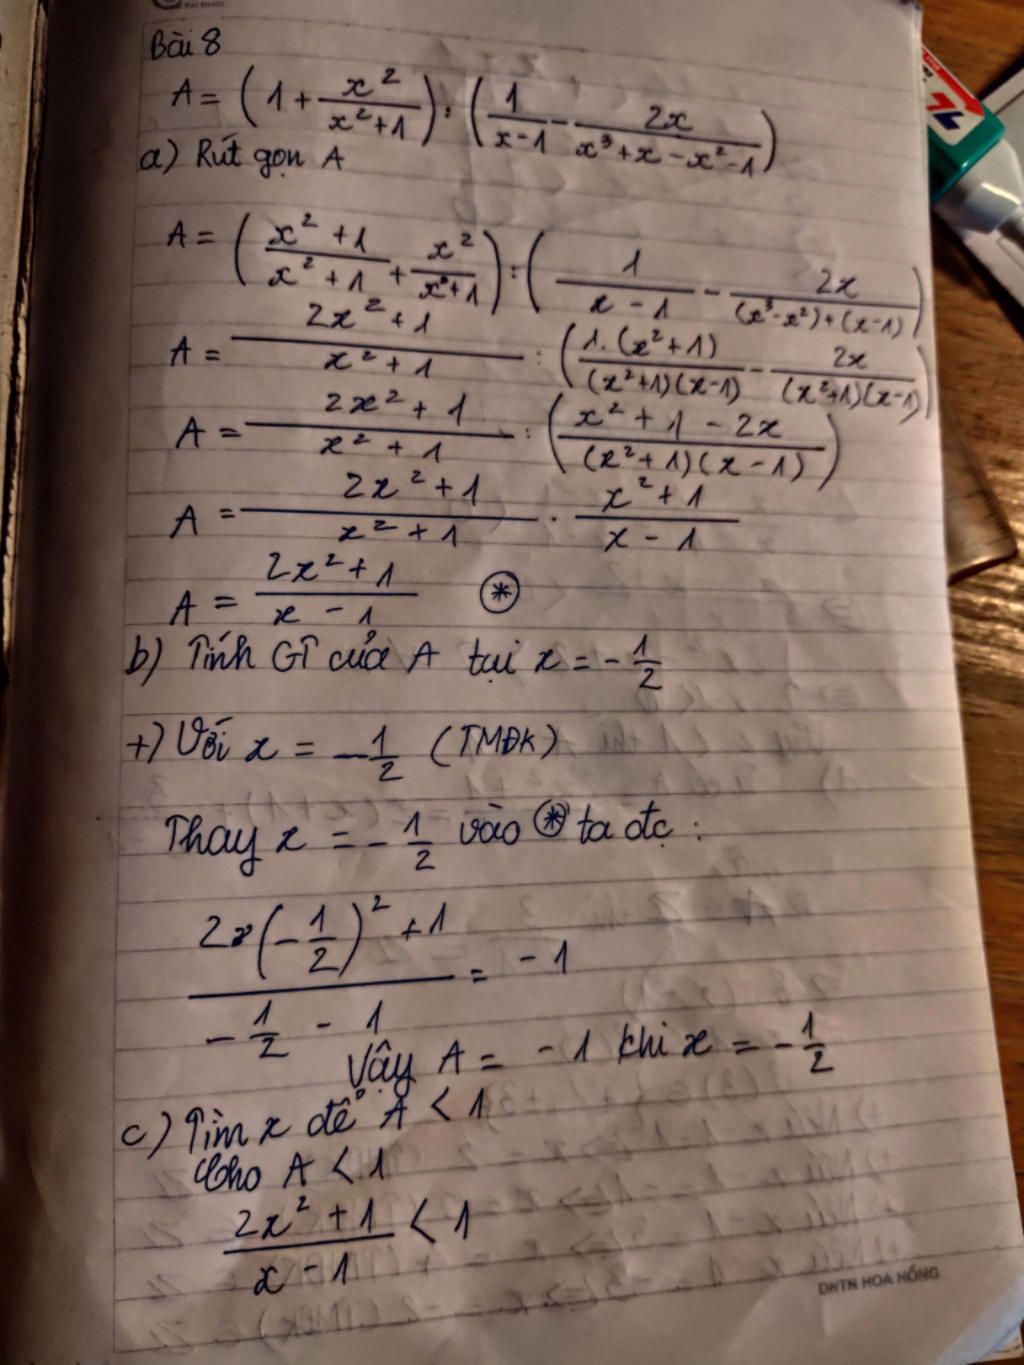 Bài 8
A = (1 + x²/(x²+1)) : (1/(x-1) - 2x/(x³+x-x²-1))
a) Rút gọn A
A = ((x²+1)/(x²+1) + x²/(x²+1)) : (1/(x-1) - 2x/((x³-x²)+(x-1)))
A = (2x²+1)/(x²+1) : (1.(x²+1)/((x²+1)(x-1)) - 2x/((x²+1)(x-1)))
A = (2x²+1)/(x²+1) : ((x²+1-2x)/((x²+1)(x-1)))
A = (2x²+1)/(x²+1) . (x²+1)/(x-1)
A = (2x²+1)/(x-1) ⊛
b) Tính GT của A tại x = -1/2
+) Với x = -1/2 (TMĐK)
Thay x = -1/2 vào ⊛ ta đc :
(2.(-1/2)²+1)/(-1/2 - 1) = -1
Vậy A = -1 khi x = -1/2
c) Tìm x để A < 1
Cho A < 1
(2x²+1)/(x-1) < 1
DNTN HOA HỒNG